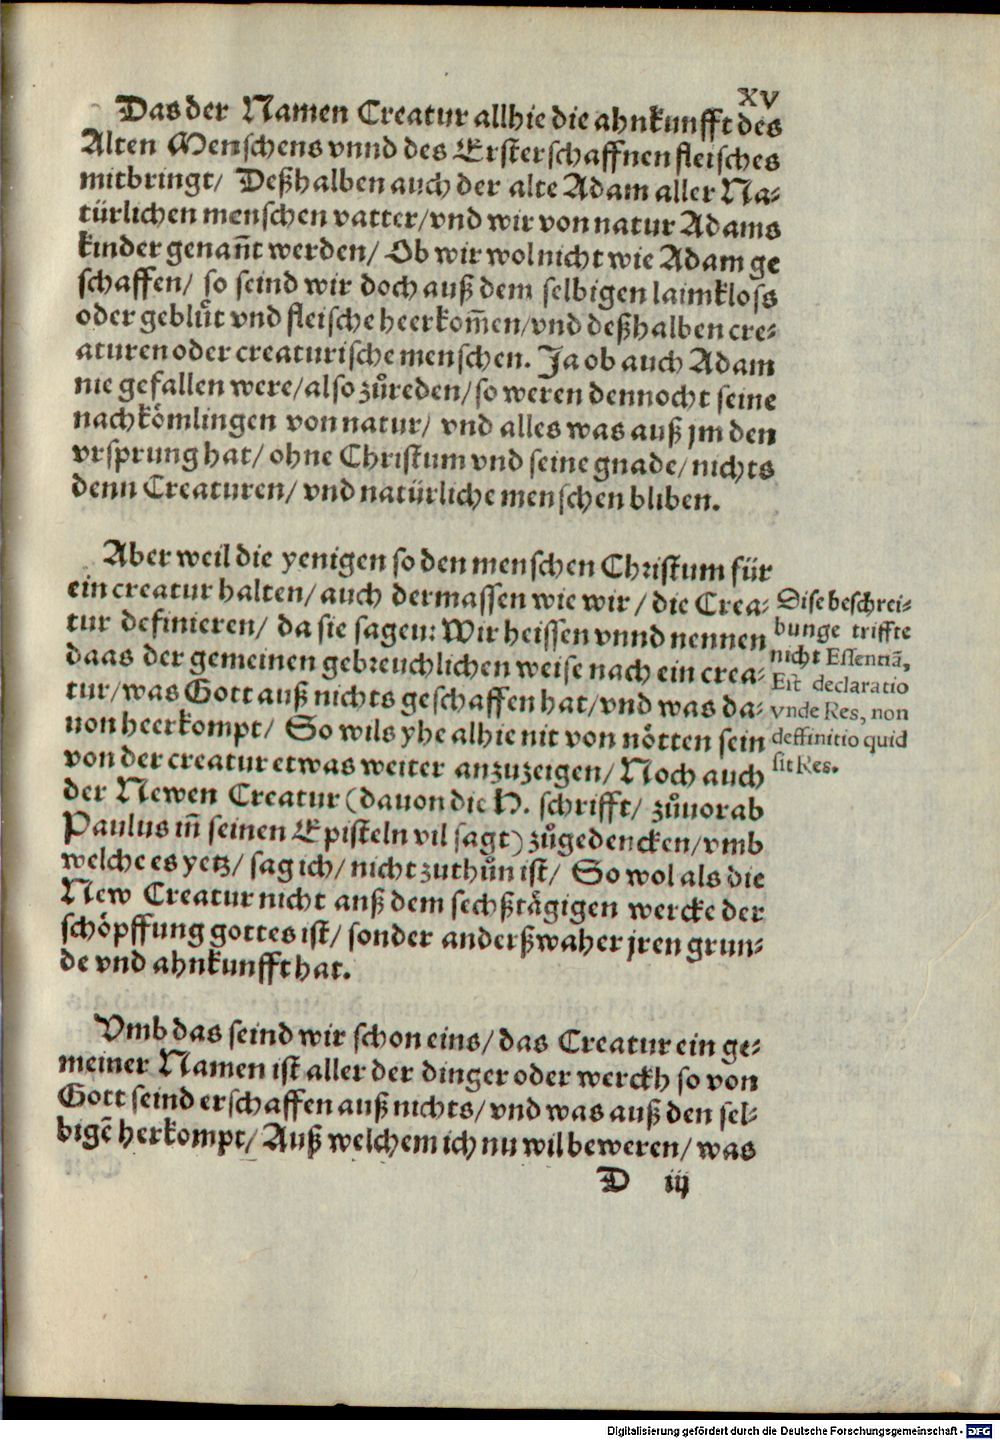 XV
Das der Namen Creatur allhie die ahnkunfft des
Alten Menschens vnnd des Ersterschaffnen fleisches
mitbringt/ Deßhalben auch der alte Adam aller Na-
türlichen menschen vatter/vnd wir von natur Adams
kinder genañt werden/ Ob wir wol nicht wie Adam ge
schaffen/ so seind wir doch auß dem selbigen laimkloss
oder geblůt vnd fleische heerkom̃en/vnd deßhalben cre-
aturen oder creaturische menschen. Ja ob auch Adam
nie gefallen were/also zůreden/so weren dennocht seine
nachkömlingen von natur/ vnd alles was auß jm den
vrsprung hat/ ohne Christum vnd seine gnade/ nichts
denn Creaturen/ vnd natürliche menschen bliben.
Aber weil die yenigen so den menschen Christum für
ein creatur halten/ auch dermassen wie wir/ die Crea-
tur definieren/ da sie sagen: Wir heissen vnnd nennen
daas der gemeinen gebreuchlichen weise nach ein crea-
tur/was Gott auß nichts geschaffen hat/vnd was da-
uon heerkompt/ So wils yhe alhie nit von nötten sein
von der creatur etwas weiter anzuzeigen/ Noch auch
der Newen Creatur (dauon die H. schrifft/ zůuorab
Paulus in̄ seinen Episteln vil sagt) zůgedencken/vmb
welche es yetz/ sag ich/ nicht zuthůn ist/ So wol als die
New Creatur nicht auß dem sechßtägigen wercke der
schöpffung gottes ist/ sonder anderßwaher jren grun-
de vnd ahnkunfft hat.
Dise beschrei-
bunge triffte
nicht Essentiã,
Est declaratio
vnde Res, non
deffinitio quid
sit Res.
Vmb das seind wir schon eins/ das Creatur ein ge-
meiner Namen ist aller der dinger oder werckh so von
Gott seind erschaffen auß nichts/ vnd was auß den sel-
bigē herkompt/ Auß welchem ich nu wil beweren/ was
D iij
Digitalisierung gefördert durch die Deutsche Forschungsgemeinschaft - DFG